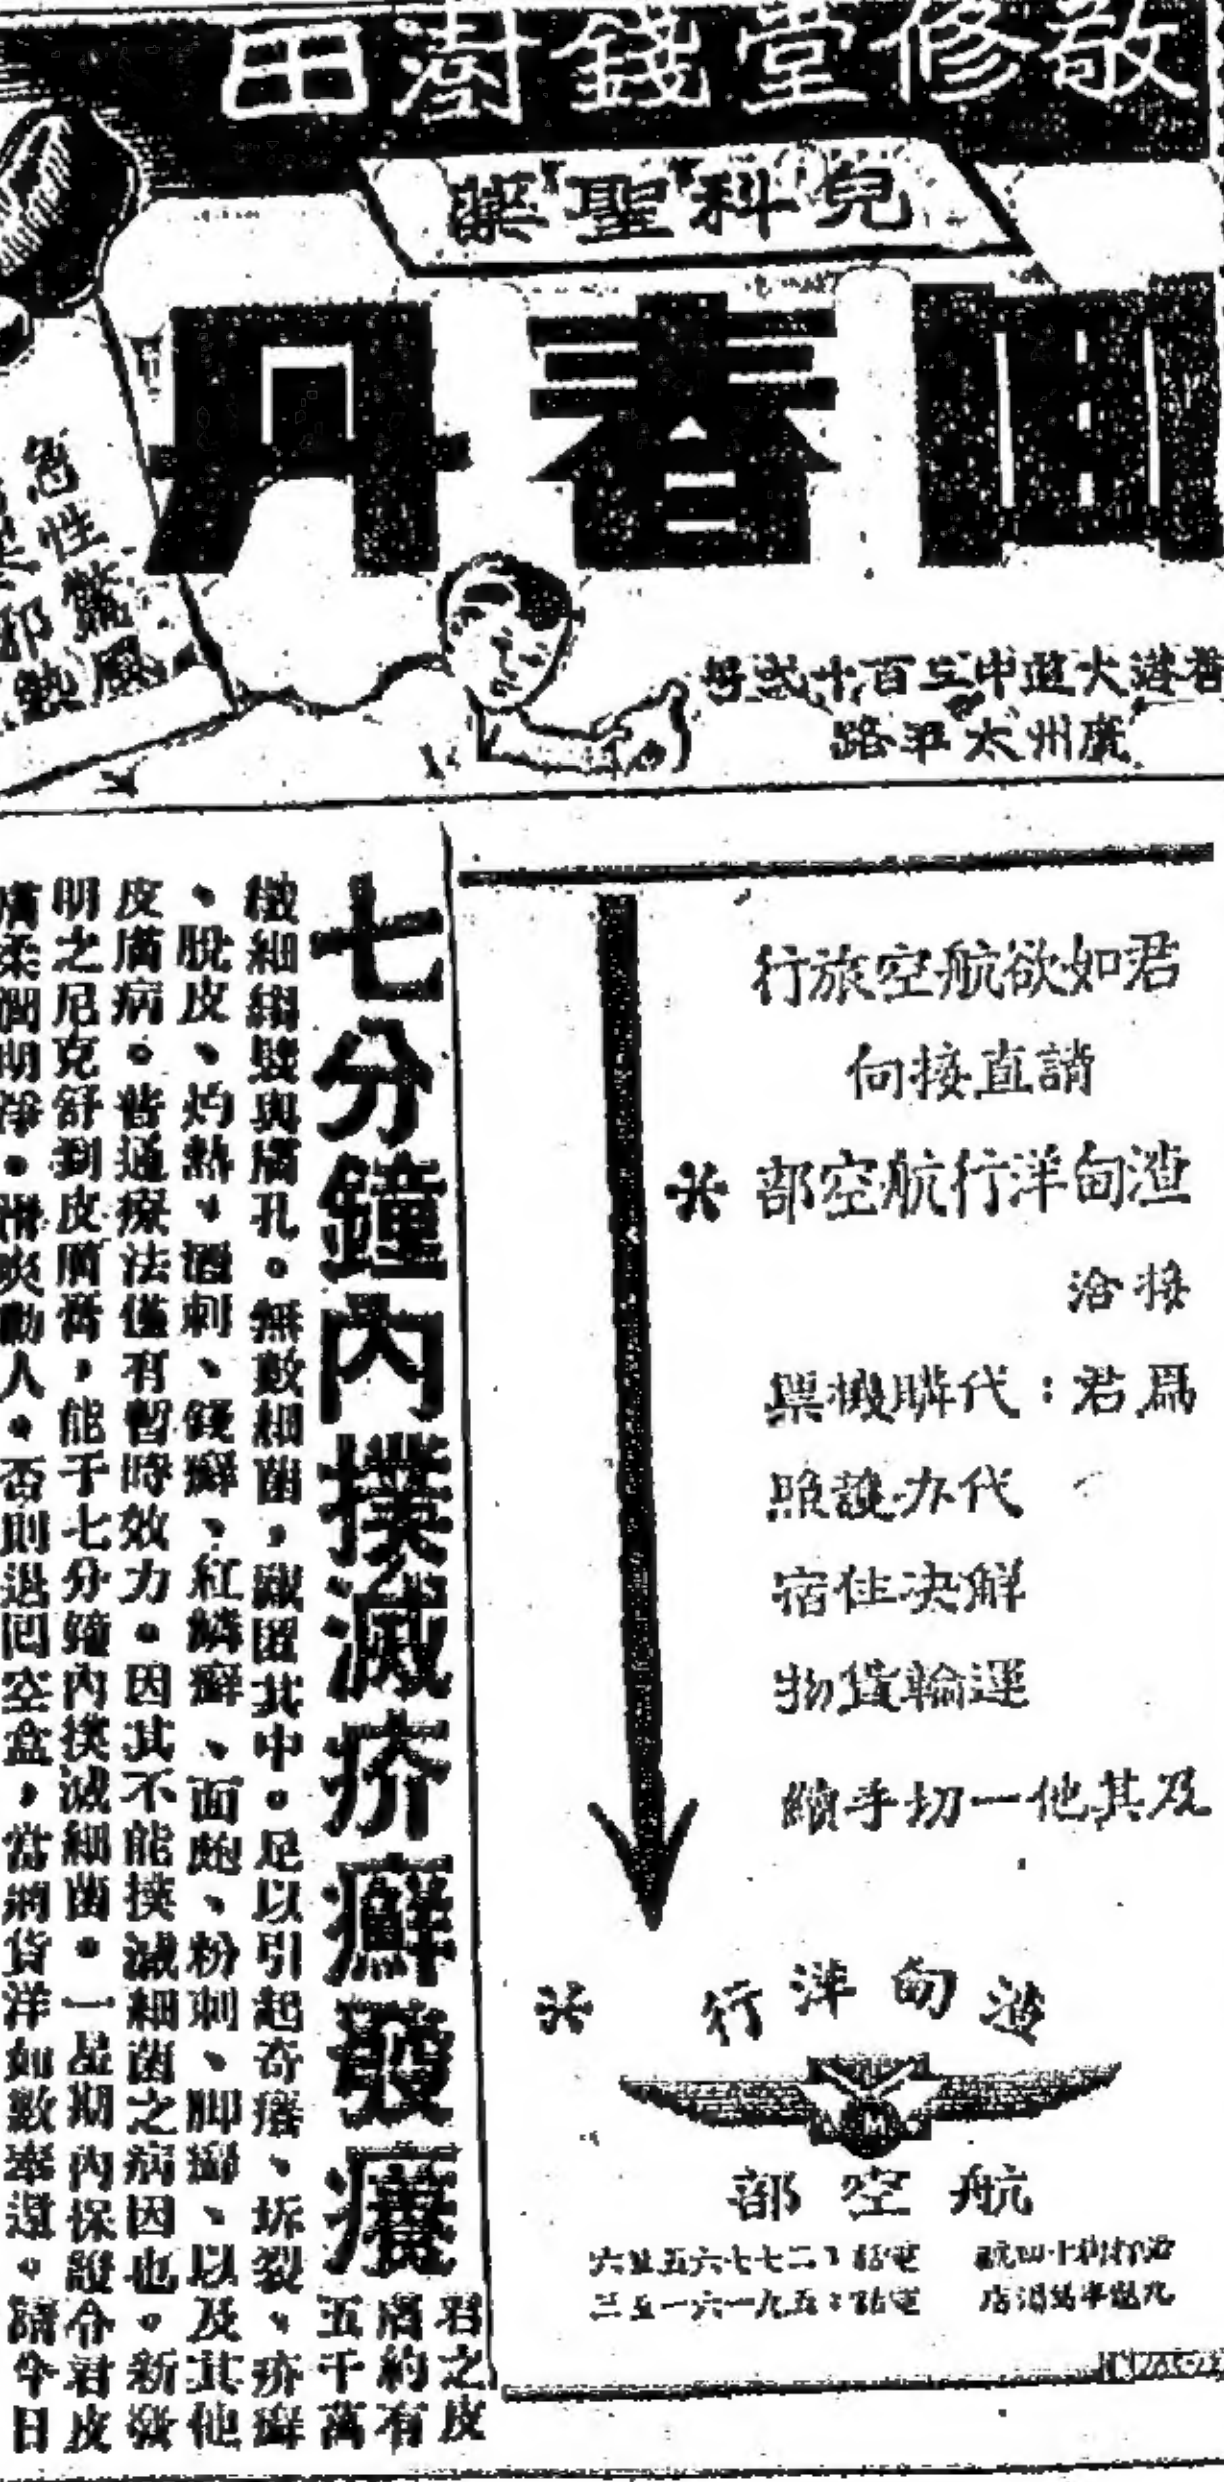 敬修堂錢澍田
兒科聖藥
回春丹
急性驚風
邪熱
香港大道中三百十弍号
廣州太平路
君如欲航空旅行
請直接向
渣甸洋行航空部
接洽
爲君：代購機票
代办護照
解决住宿
運輸貨物
及其他一切手續
渣甸洋行
M
航空部
電話
電話：五九一六一五三
七分鐘內撲滅疥癬發癢
君之皮
膚約有
五千萬
細縐襞與膚孔。無數細菌，藏匿其中。足以引起奇癢、坼裂、疥癬
、脫皮、灼熱，酒刺、錢癬、紅鱗癬、面皰、粉刺、脚癬、以及其他
皮膚病。普通療法僅有暫時效力。因其不能撲滅細菌之病因也。新發
明之尼克舒到皮膚膏，能于七分鐘內撲滅細菌。一星期內保證令君皮
膚柔潤明淨。滑爽動人。否則退回空盒，當將貨洋如數奉還。請今日